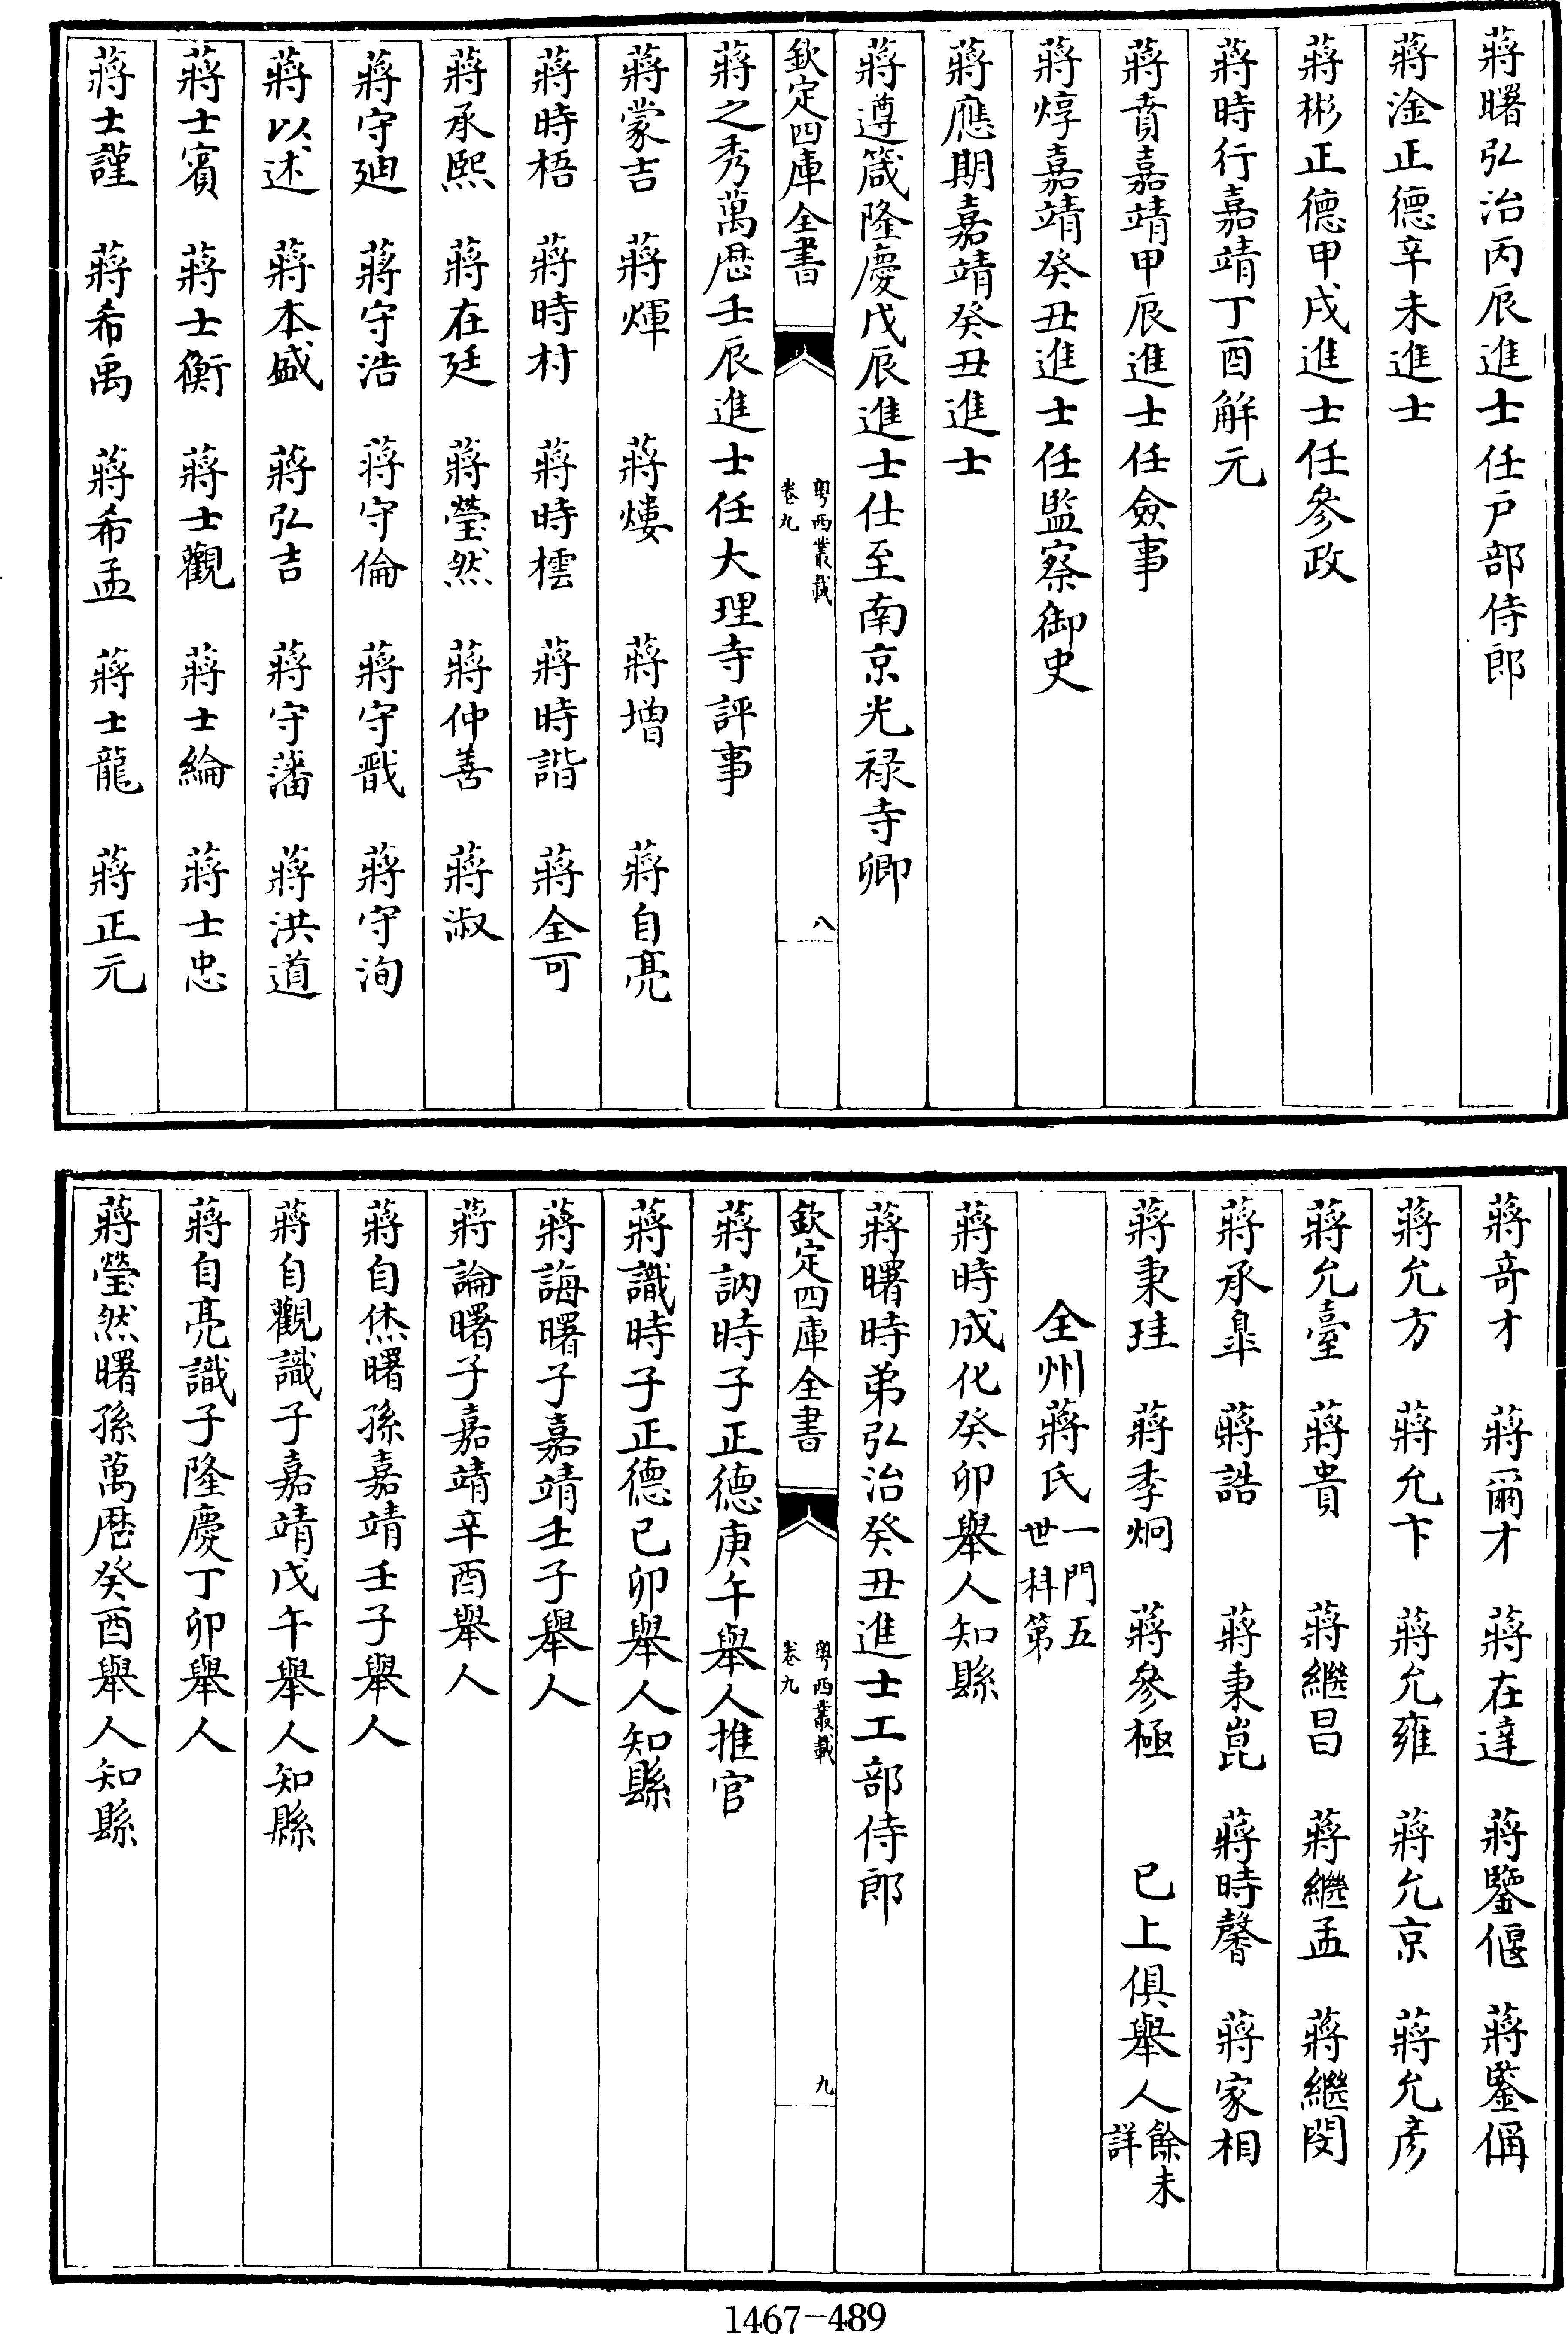 蔣曙弘治丙辰進士任戶部侍郎
蔣淦正德辛未進士
蔣彬正德甲戌進士任參政
蔣時行嘉靖丁酉解元
蔣賁嘉靖甲辰進士任僉事
蔣焞嘉靖癸丑進士任監察御史
蔣應期嘉靖癸丑進士
蔣遵箴隆慶戊辰進士仕至南京光禄寺卿
欽定四庫全書
粵西叢載
卷九
八
蔣之秀萬厯壬辰進士任大理寺評事
蔣蒙吉 蔣煇 蔣熡 蔣增 蔣自亮
蔣時梧 蔣時村 蔣時橒 蔣時諧 蔣全可
蔣承熙 蔣在廷 蔣瑩然 蔣仲善 蔣淑
蔣守廸 蔣守浩 蔣守倫 蔣守戩 蔣守洵
蔣以述 蔣本盛 蔣弘吉 蔣守藩 蔣洪道
蔣士賓 蔣士衡 蔣士觀 蔣士綸 蔣士忠
蔣士謹 蔣希禹 蔣希孟 蔣士龍 蔣正元
蔣奇才 蔣爾才 蔣在達 蔣鑒偃 蔣鑒偁
蔣允方 蔣允卞 蔣允雍 蔣允京 蔣允彥
蔣允臺 蔣貴 蔣繼昌 蔣繼孟 蔣繼閔
蔣承臯 蔣誥 蔣秉崑 蔣時馨 蔣家相
蔣秉珪 蔣季炯 蔣參極 已上俱舉人餘未詳
全州蔣氏一門五世科第
蔣時成化癸卯舉人知縣
蔣曙時弟弘治癸丑進士工部侍郎
欽定四庫全書
粵西叢載
卷九
九
蔣訥時子正德庚午舉人推官
蔣識時子正德己卯舉人知縣
蔣誨曙子嘉靖壬子舉人
蔣論曙子嘉靖辛酉舉人
蔣自烋曙孫嘉靖壬子舉人
蔣自觀識子嘉靖戊午舉人知縣
蔣自亮識子隆慶丁卯舉人
蔣瑩然曙孫萬厯癸酉舉人知縣
1467-489